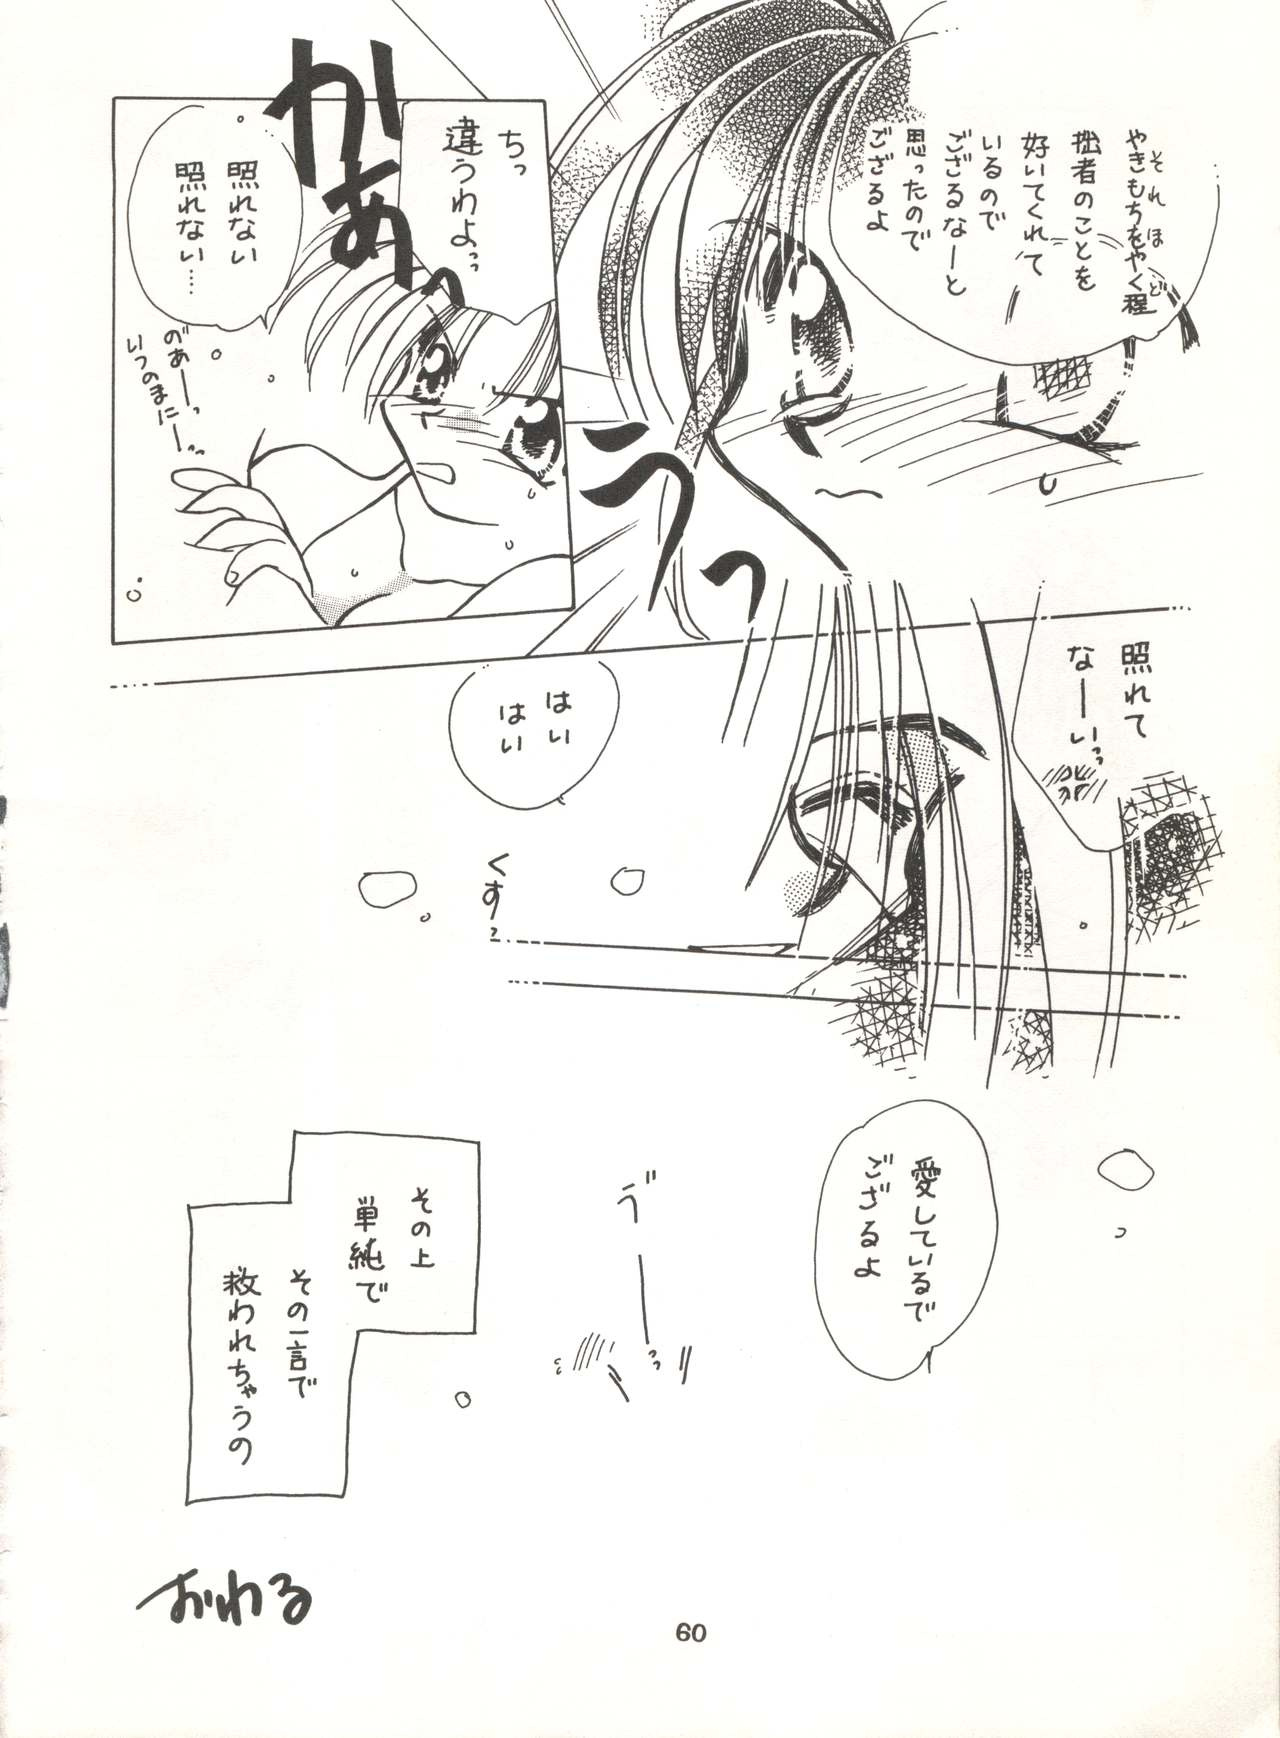 やきもちをやく程
それほど
拙者のことを
好いてくれて
いるので
ござるなーと
思ったので
ござるよ
うっ
ちっ
違うわよっっ
かあぁ
照れない
照れない…
のあーっ
いつのまにーっっ
照れて
なーいっっ
はい
はい
くすっ
愛しているで
ござるよ
ゔーっっ
その上
単純で
その一言で
救われちゃうの
おわる
60